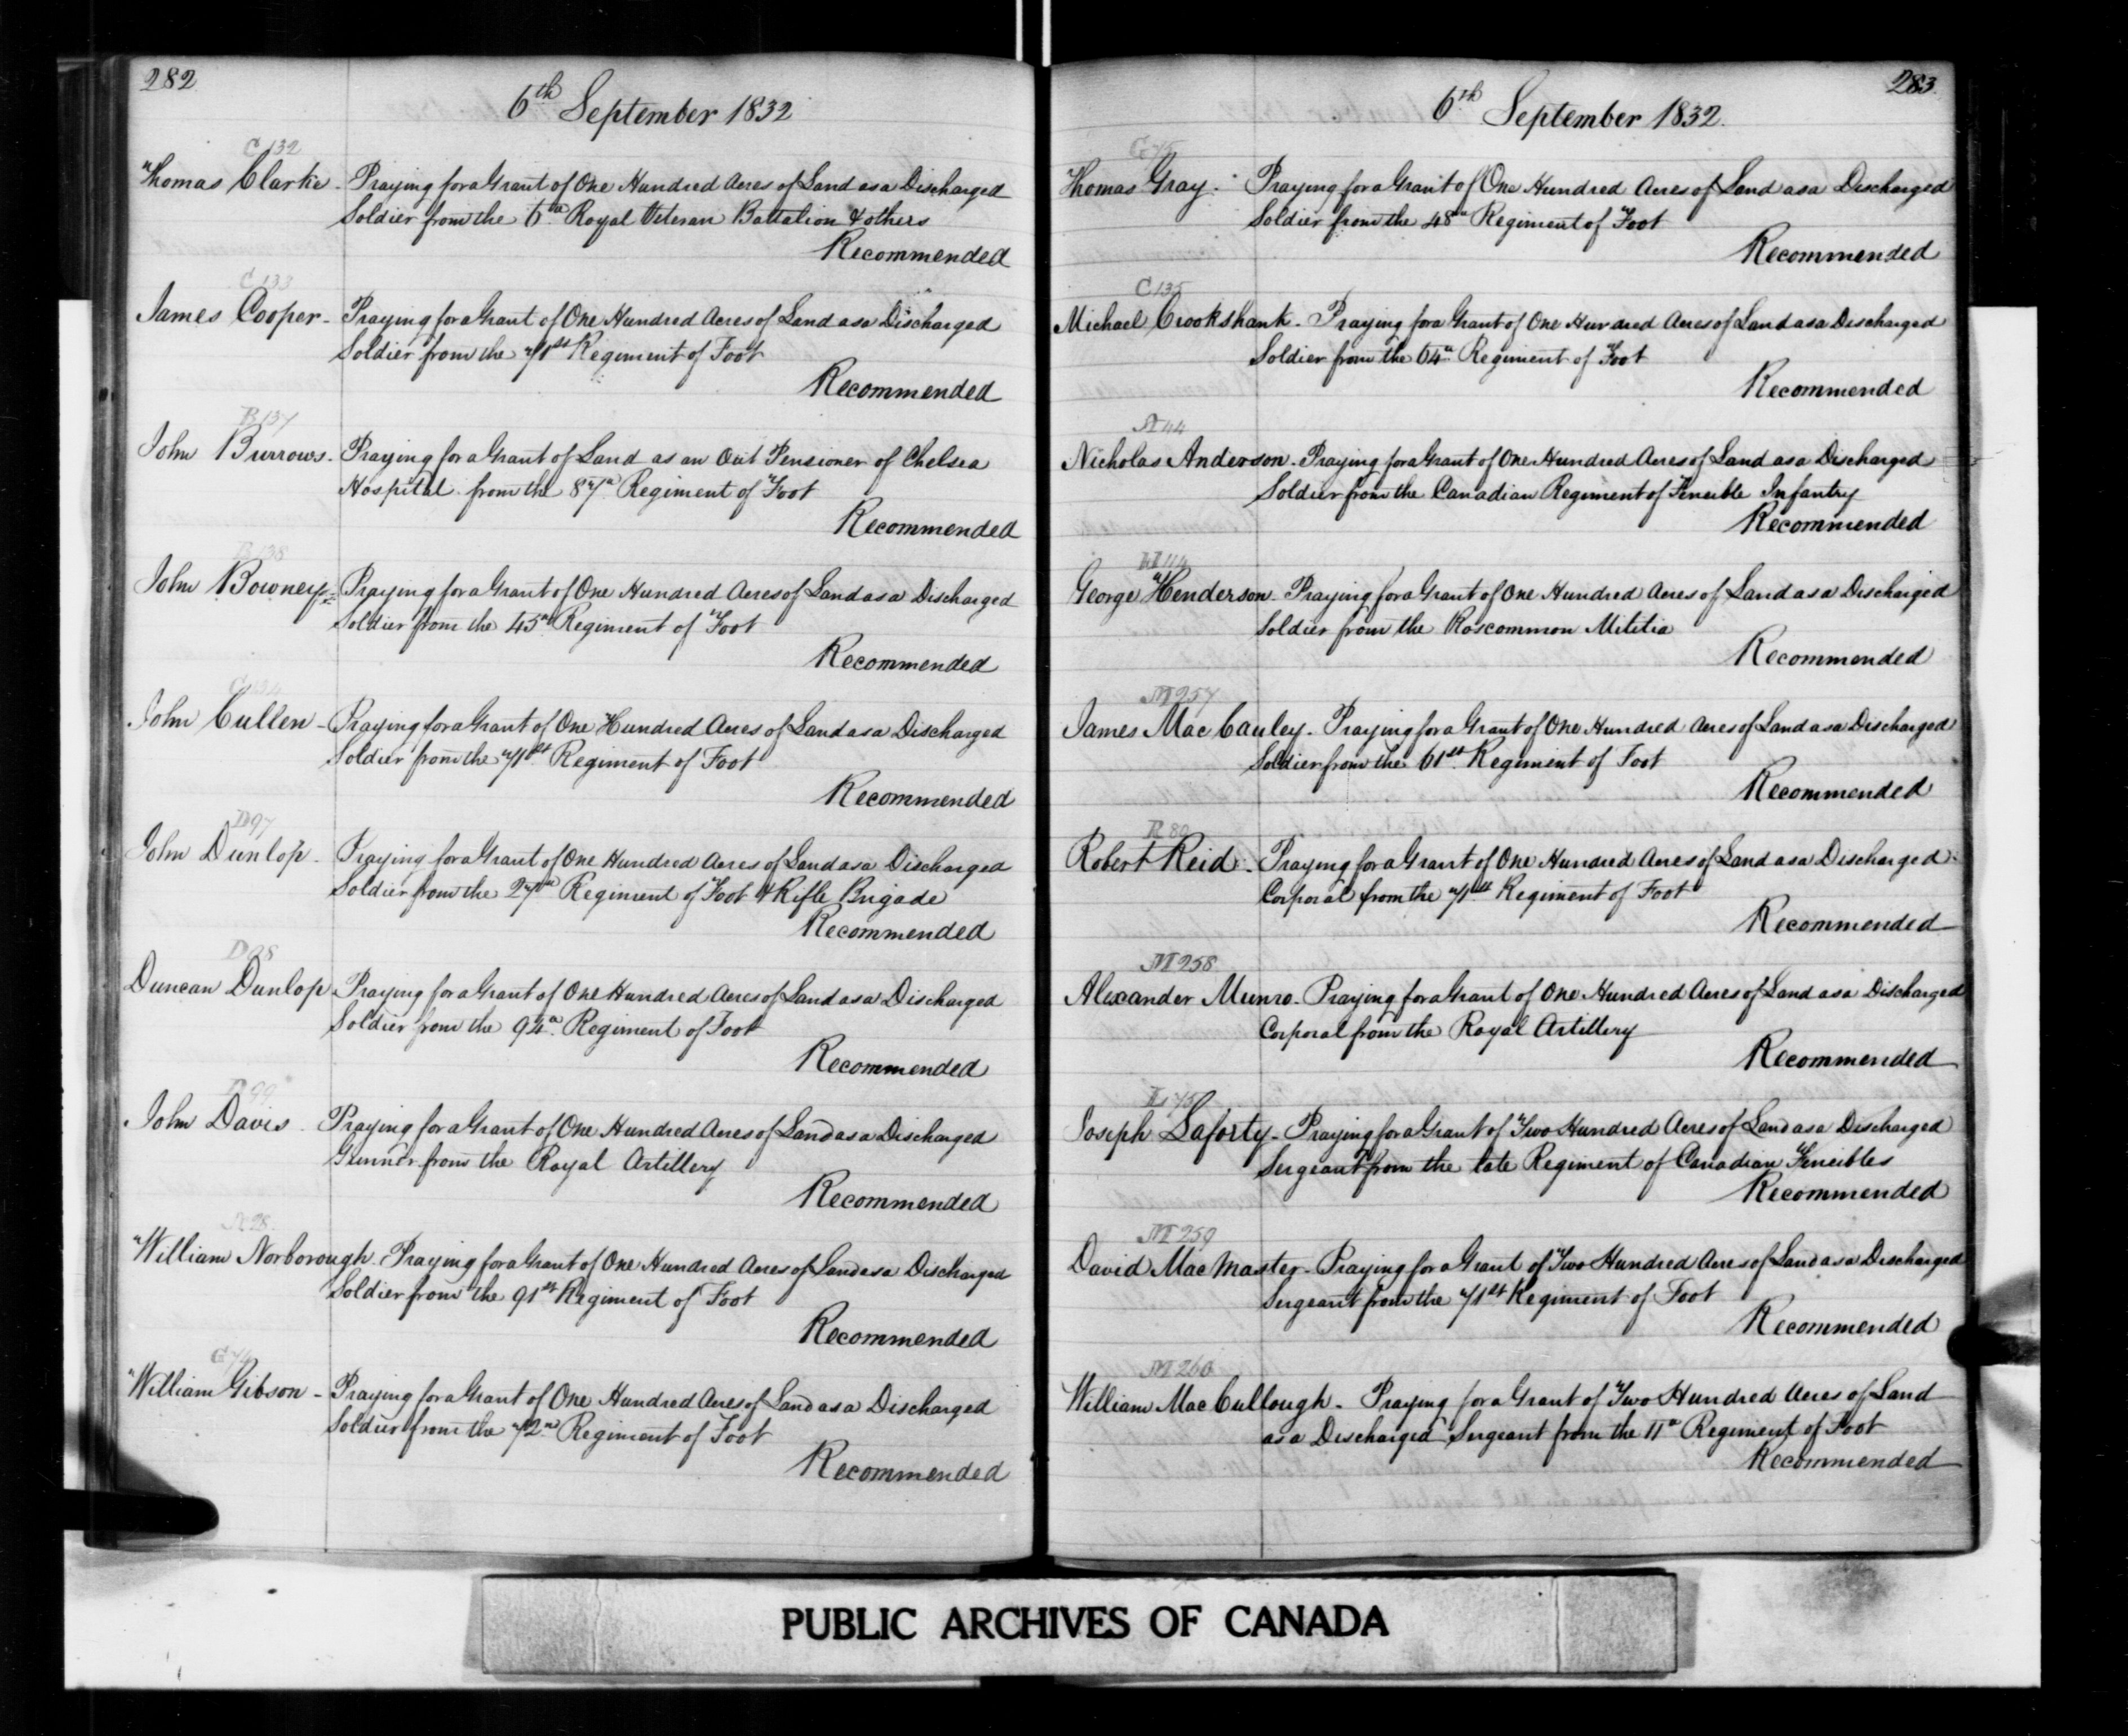 282
6th September 1832
C 132
Thomas Clarke - Praying for a Grant of One Hundred Acres of Land as a Discharged
Soldier from the 6th Royal Veteran Battalion & others
Recommended
C 133
James Cooper - Praying for a Grant of One Hundred Acres of Land as a Discharged
Soldier from the 71st Regiment of Foot
Recommended
B 137
John Burrows - Praying for a Grant of Land as an Out Pensioner of Chelsea
Hospital from the 87th Regiment of Foot
Recommended
B 138
John Bowney - Praying for a Grant of One Hundred Acres of Land as a Discharged
Soldier from the 45th Regiment of Foot
Recommended
C 134
John Cullen - Praying for a Grant of One Hundred Acres of Land as a Discharged
Soldier from the 71st Regiment of Foot
Recommended
D 97
John Dunlop - Praying for a Grant of One Hundred Acres of Land as a Discharged
Soldier from the 27th Regiment of Foot & Rifle Brigade
Recommended
D 98
Duncan Dunlop - Praying for a Grant of One Hundred Acres of Land as a Discharged
Soldier from the 94th Regiment of Foot
Recommended
D 99
John Davis Praying for a Grant of One Hundred Acres of Land as a Discharged
Gunner from the Royal Artillery
Recommended
N 28
William Norborough - Praying for a Grant of One Hundred Acres of Land as a Discharged
Soldier from the 91st Regiment of Foot
Recommended
G 74
William Gibson - Praying for a Grant of One Hundred Acres of Land as a Discharged
Soldier from the 72nd Regiment of Foot
Recommended
283
6th September 1832
G 75
Thomas Gray - Praying for a Grant of One Hundred Acres of Land as a Discharged
Soldier from the 48th Regiment of Foot
Recommended
C 135
Michael Crookshank - Praying for a Grant of One Hundred Acres of Land as a Discharged
Soldier from the 64th Regiment of Foot
Recommended
A 44
Nicholas Anderson - Praying for a Grant of One Hundred Acres of Land as a Discharged
Soldier from the Canadian Regiment of Fencible Infantry
Recommended
H 114
George Henderson - Praying for a Grant of One Hundred Acres of Land as a Discharged
Soldier from the Roscommon Militia
Recommended
M 257
James Mac Cauley - Praying for a Grant of One Hundred Acres of Land as a Discharged
Soldier from the 61st Regiment of Foot
Recommended
R 80
Robert Reid - Praying for a Grant of One Hundred Acres of Land as a Discharged
Corporal from the 71st Regiment of Foot
Recommended
M 258
Alexander Munro - Praying for a Grant of One Hundred Acres of Land as a Discharged
Corporal from the Royal Artillery
Recommended
L 75
Joseph Laforty - Praying for a Grant of Two Hundred Acres of Land as a Discharged
Sergeant from the late Regiment of Canadian Fencibles
Recommended
M 259
David Mac Master - Praying for a Grant of Two Hundred Acres of Land as a Discharged
Sergeant from the 71st Regiment of Foot
Recommended
M 260
William Mac Cullough - Praying for a Grant of Two Hundred Acres of Land
as a Discharged Sergeant from the 11th Regiment of Foot
Recommended
PUBLIC ARCHIVES OF CANADA